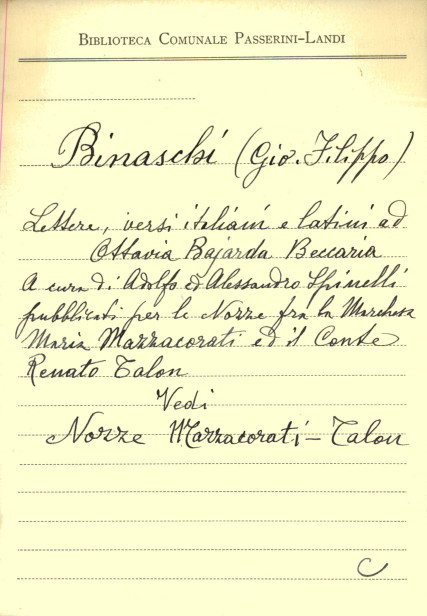 BIBLIOTECA COMUNALE PASSERINI-LANDI
Binaschi (Gio. Filippo)
Lettere, versi italiani e latini ad
Ottavia Bajarda Beccaria
A cura di Adolfo ed Alessandro Spinelli
pubblicati per le Nozze fra la Marchesa
Maria Mazzacorati ed il Conte
Renato Talon
Vedi
Nozze Mazzacorati-Talon
C